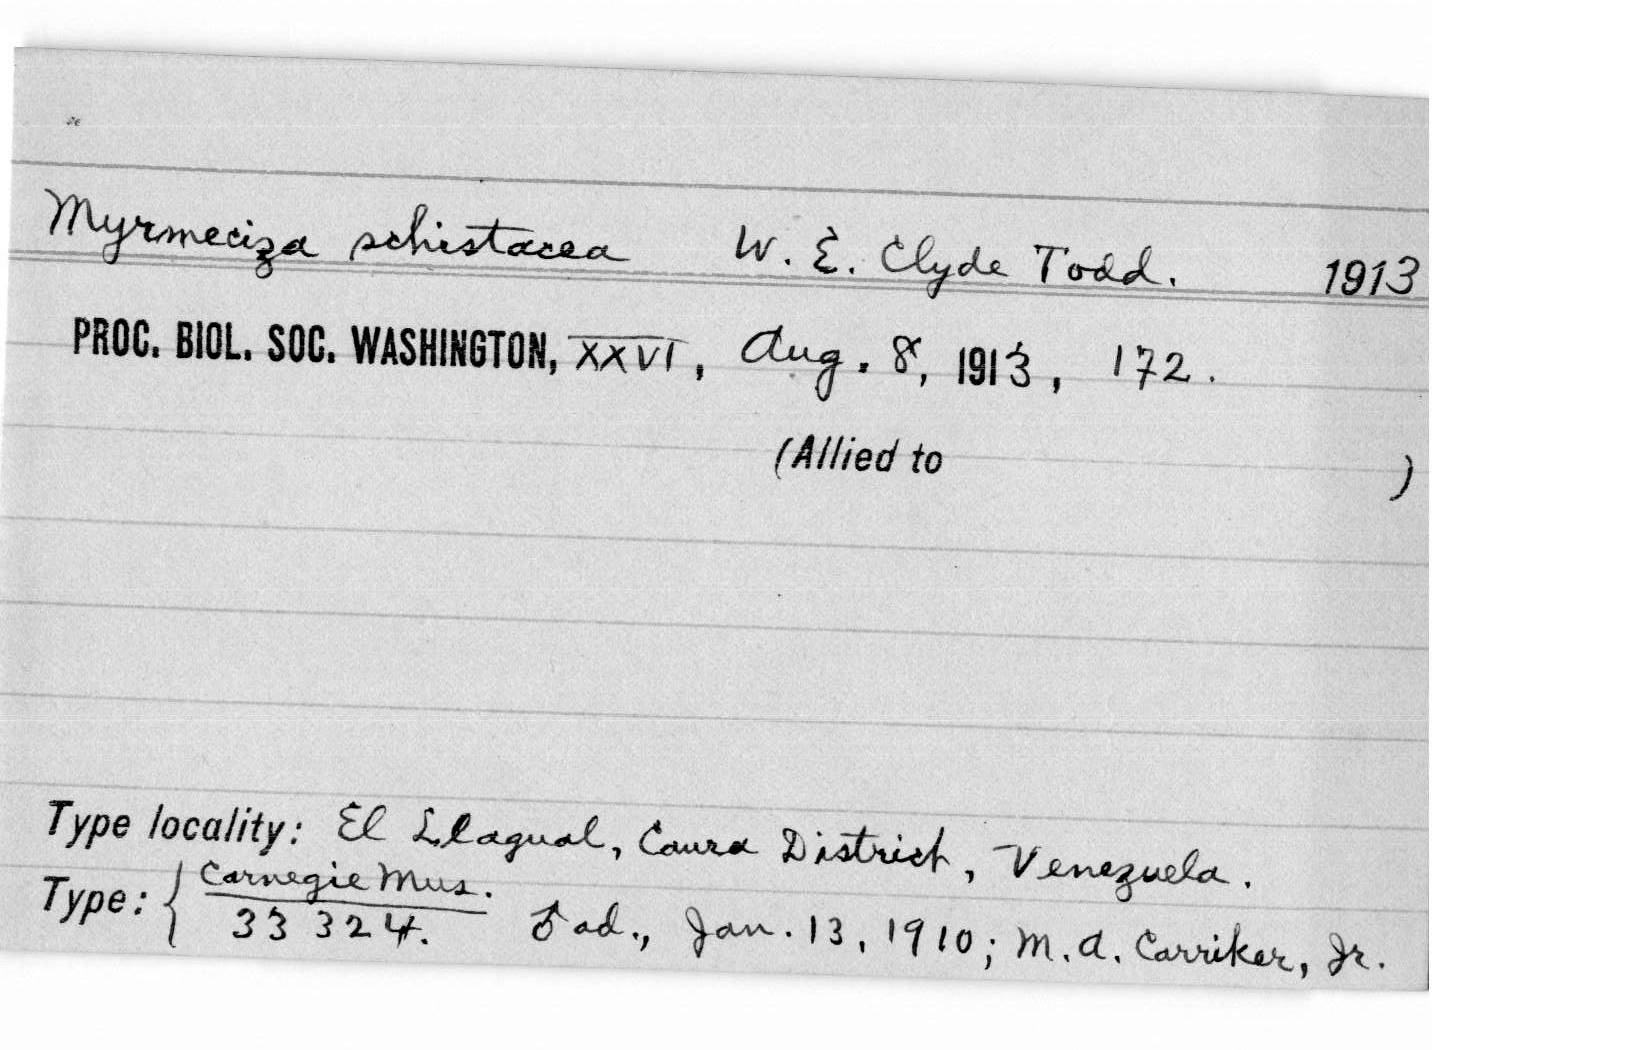 Myrmeciza schistacea W. E. Clyde Todd. 1913
PROC. BIOL. SOC. WASHINGTON, XXVI, Aug. 8, 1913, 172.
(Allied to )
Type locality: El Llagual, Caura District, Venezuela.
Type: { Carnegie Mus.
33 324. ♂ ad., Jan. 13, 1910; M. A. Carriker, Jr.